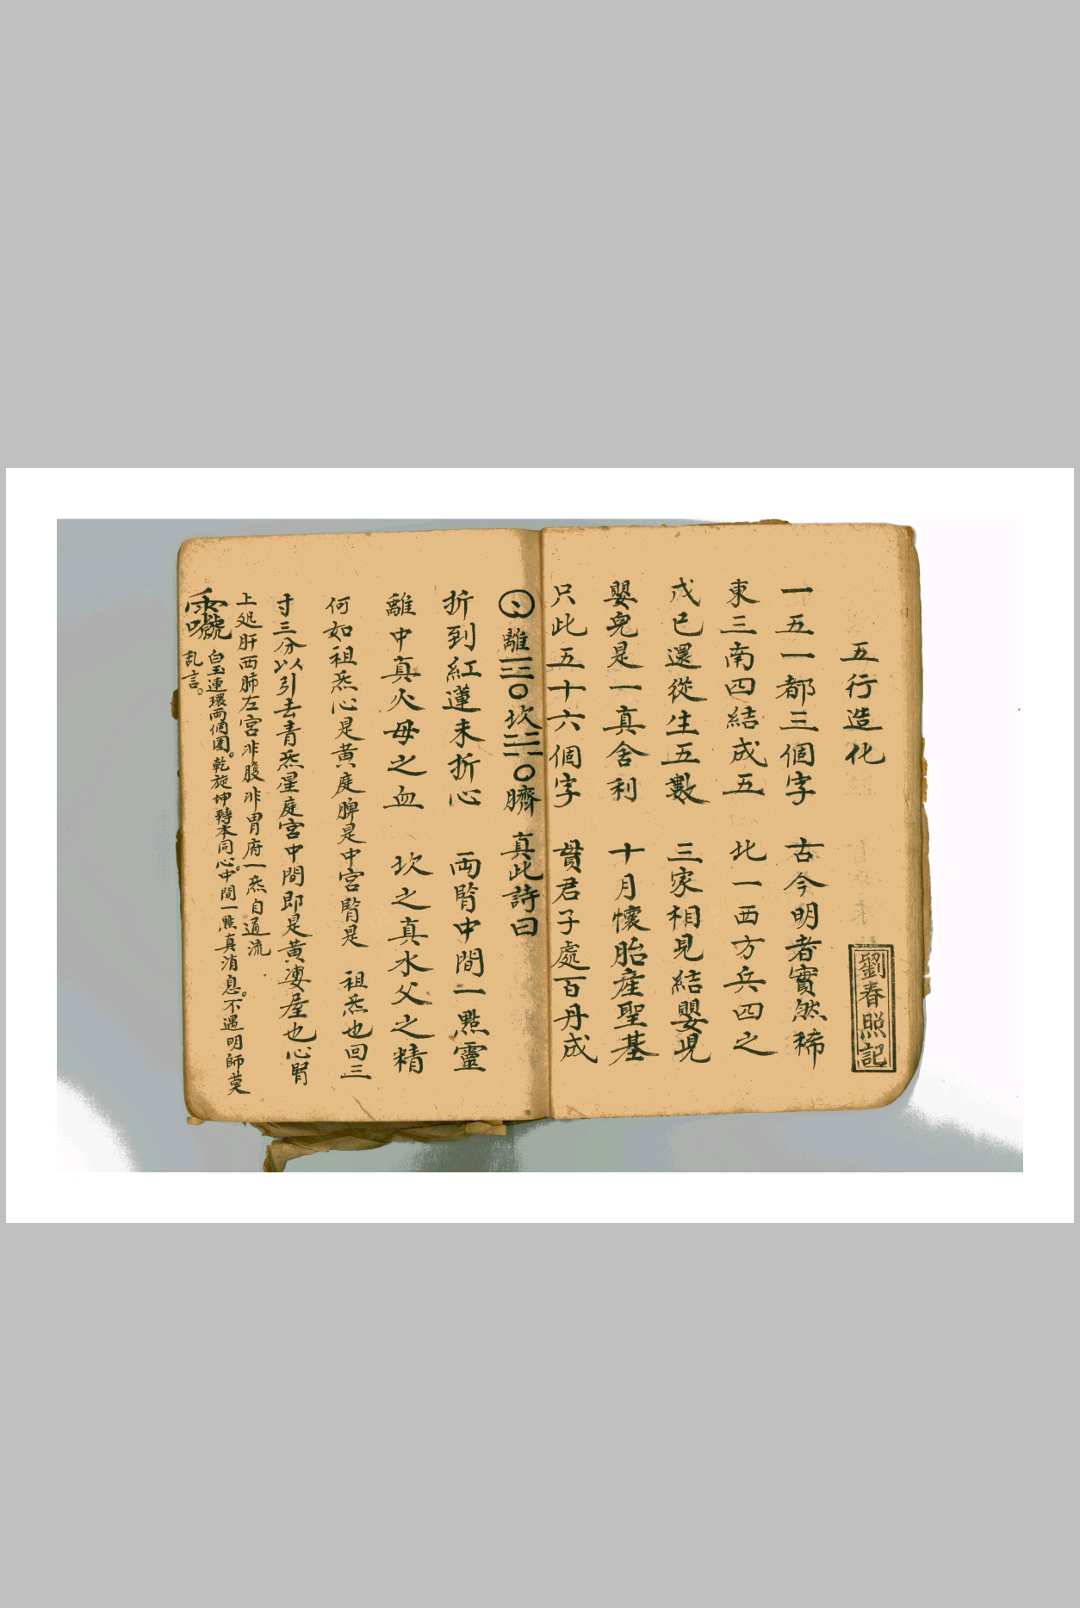 五行造化
劉春照記
一五一都三個字　古今明者實然稀
東三南四結成五　北一西方兵四之
戊己還從生五數　三家相見結嬰兒
嬰兒是一真舍利　十月懷胎產聖基
只此五十六個字　賢君子處百丹成
離☲〇坎☵〇臍　真此詩曰
折到紅蓮未折心　両腎中間一點靈
離中真火母之血　坎之真水父之精
何如祖炁心是黃庭脾是中宮腎是　祖炁也回三
寸三分以引去青炁星庭宮中間即是黃凄屋也心腎
上処肝西肺左宮非腹非胃府一炁自通流
白玉連環両個圈。乾旋坤轉本同心。中間一點真消息。不遇明師莫
乱言。